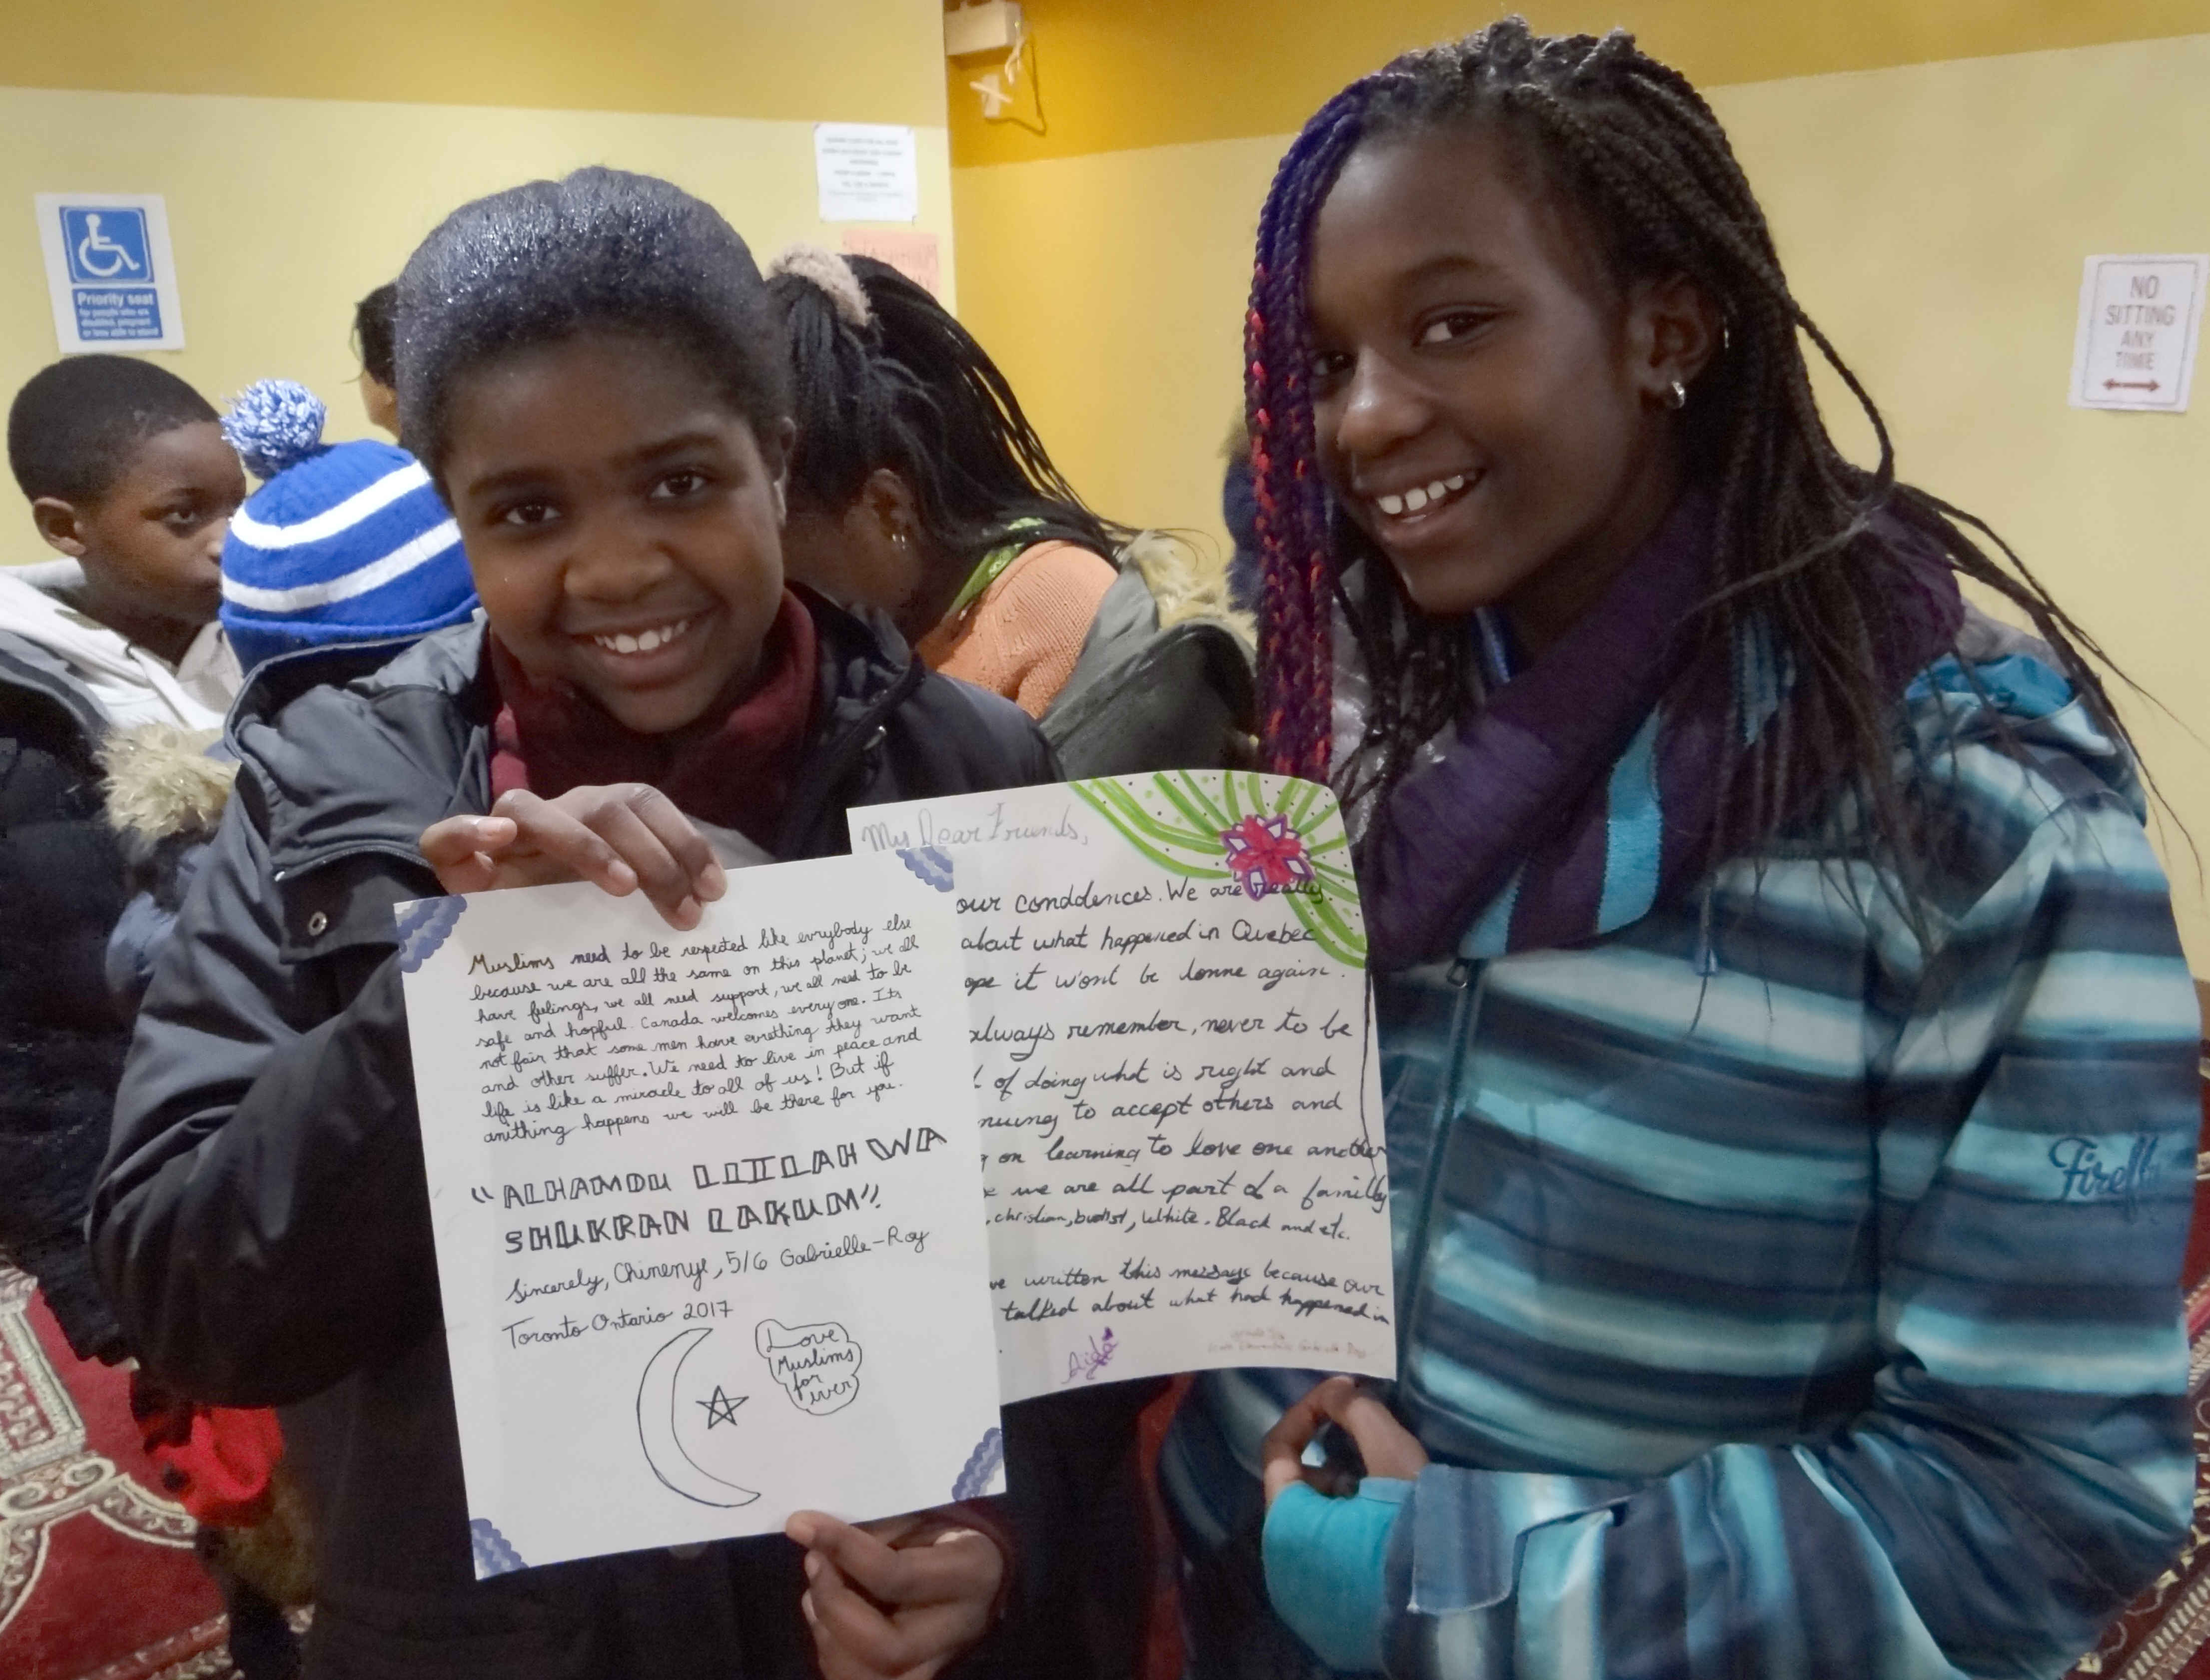 Priority seat
for people who are
disabled, pregnant
or less able to stand
NO
SITTING
ANY
TIME
Muslims need to be respected like evrybody else
because we are all the same on this planet; we all
have feelings, we all need support, we all need to be
safe and hopful. Canada welcomes every one. Its
not fair that some men have evrething they want
and other suffer. We need to live in peace and
life is like a miracle to all of us! But if
anithing happens we will be there for you.
"ALHAMDU LIIILAH WA
SHUKRAN LAKUM"
Sincerely, Chinenye, 5/6 Gabrielle-Roy
Toronto Ontario 2017
Love
Muslims
for
ever
My Dear Friends,
our conddences. We are really
about what happened in Quebec
ope it wont be donne again.
always remember, never to be
of doing what is right and
nuing to accept others and
on learning to love one another
we are all part of a familly
, christian, budist, White, Black and etc.
ve written this message because our
talked about what had happened in
Aida
Firefly